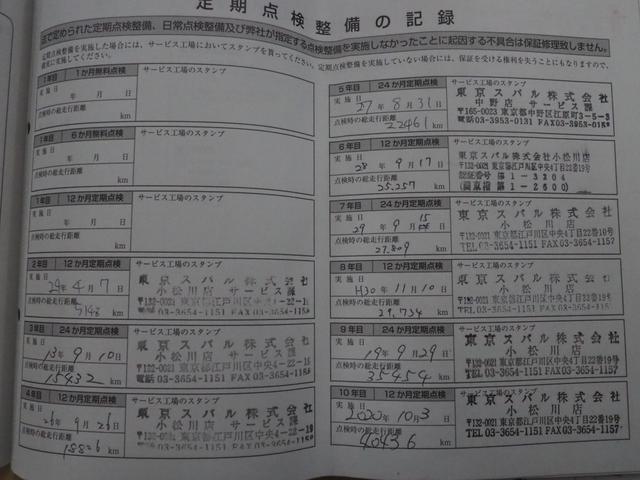 定期点検整備の記録
法で定められた定期点検整備、日常点検整備及び弊社が指定する点検整備を実施しなかったことに起因する不具合は保証修理致しません。
定期点検整備を実施した場合には、サービス工場においてスタンプを貰ってください。定期点検整備を実施していない場合には、保証を受ける権利を失うこともありますので、
確実に実施してください。
1年目 1か月無料点検 サービス工場のスタンプ
実施日
年 月 日
点検時の総走行距離
km
1年目 6か月無料点検 サービス工場のスタンプ
実施日
年 月 日
点検時の総走行距離
km
1年目 12か月定期点検 サービス工場のスタンプ
実施日
年 月 日
点検時の総走行距離
km
2年目 12か月定期点検 サービス工場のスタンプ
実施日
年 4月 7日
点検時の総走行距離
km
東京スバル株式会社
小松川店 サービス課
〒132-0021 東京都江戸川区中央4-22-19
電話03-3654-1151 FAX03-3654-1157
3年目 24か月定期点検 サービス工場のスタンプ
実施日
年 9月 10日
点検時の総走行距離
15432 km
東京スバル株式会社
小松川店 サービス課
〒132-0021 東京都江戸川区中央4-22-19
電話03-3654-1151 FAX03-3654-1157
4年目 12か月定期点検 サービス工場のスタンプ
実施日
26年 9月 26日
点検時の総走行距離
18826 km
東京スバル株式会社
小松川店 サービス課
〒132-0021 東京都江戸川区中央4-22-19
電話03-3654-1151 FAX03-3654-1157
5年目 24か月定期点検 サービス工場のスタンプ
実施日
27年 8月 31日
点検時の総走行距離
22461 km
東京スバル株式会社
中野店 サービス課
〒165-0023 東京都中野区江原町3-5-3
電話03-3953-0131 FAX03-3953-0158
6年目 12か月定期点検 サービス工場のスタンプ
実施日
28年 9月 17日
点検時の総走行距離
25,257 km
東京スバル株式会社小松川店
〒132-0021 東京都江戸川区中央4丁目22番19号
認証番号 第1-3204
第1-2600
7年目 12か月定期点検 サービス工場のスタンプ
実施日
29年 9月 15日
点検時の総走行距離
27,809 km
東京スバル株式会社
小松川店
〒132-0021 東京都江戸川区中央4丁目22番19号
TEL03-3654-1151 FAX03-3654-1157
8年目 12か月定期点検 サービス工場のスタンプ
実施日
H30年 11月 10日
点検時の総走行距離
km
東京スバル株式会社
小松川店
〒132-0021 東京都江戸川区中央4丁目22番19号
TEL.03-3654-1151 FAX.03-3654-1157
9年目 24か月定期点検 サービス工場のスタンプ
実施日
19年 9月 29日
点検時の総走行距離
35454 km
東京スバル株式会社
小松川店
〒132-0021 東京都江戸川区中央4丁目22番19号
TEL.03-3654-1151 FAX.03-3654-1157
10年目 12か月定期点検 サービス工場のスタンプ
実施日
2020年 10月 3日
点検時の総走行距離
40436 km
東京スバル株式会社
小松川店
〒132-0021 東京都江戸川区中央4丁目22番19号
TEL.03-3654-1151 FAX.03-3654-1157